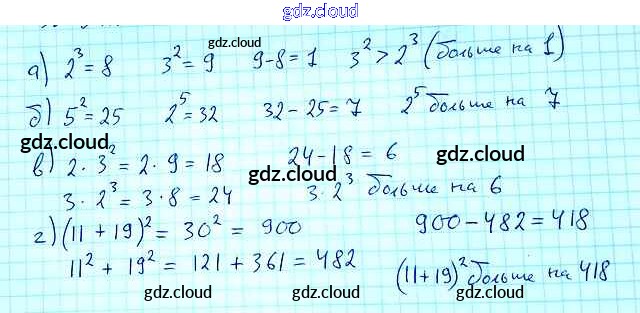 gdz.cloud
а) 2³ = 8 3² = 9 9-8 = 1 3² > 2³ (больше на 1)
gdz.cloud
б) 5² = 25 2⁵ = 32 32 - 25 = 7 2⁵ больше на 7
gdz.cloud gdz.cloud
в) 2 · 3² = 2 · 9 = 18 24 - 18 = 6
gdz.cloud
3 · 2³ = 3 · 8 = 24 3 · 2³ больше на 6
г) (11 + 19)² = 30² = 900 900 - 482 = 418
11² + 19² = 121 + 361 = 482 (11+19)² больше на 418
gdz.cloud gdz.cloud gdz.cloud